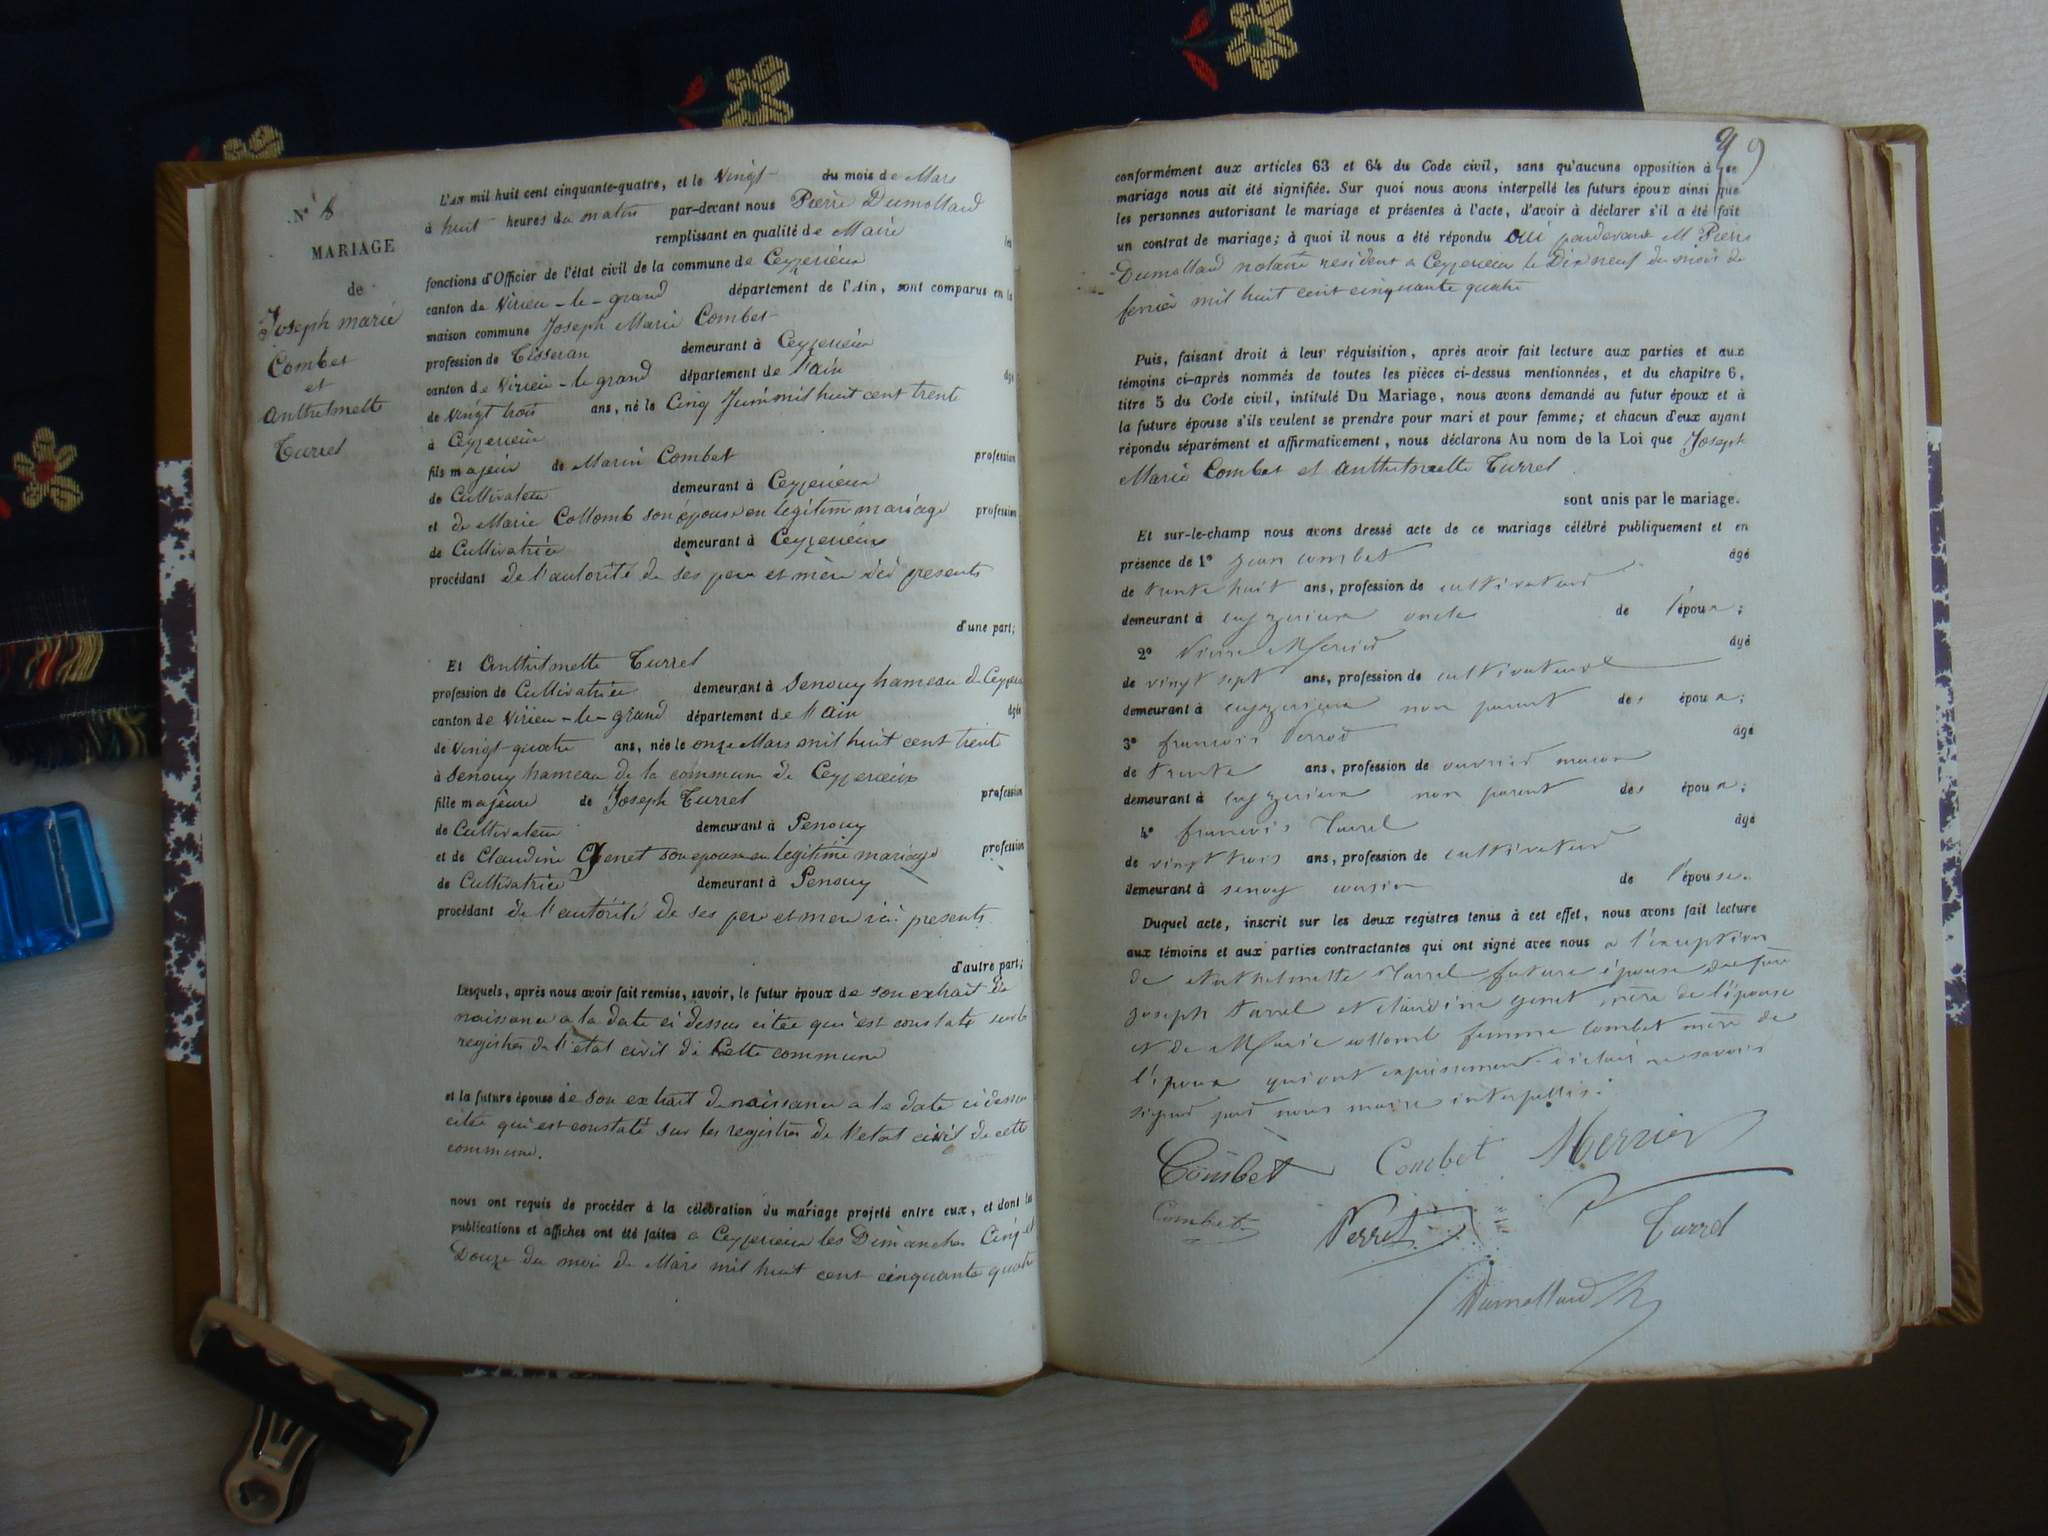 N° 8
MARIAGE
de
Joseph marie
Combet
et
anthelmette
Turrel
L'AN mil huit cent cinquante-quatre, et le Vingt du mois de Mars
à huit heures du matin par-devant nous Pierre Dumollard
remplissant en qualité de Maire les
fonctions d'Officier de l'état civil de la commune de Ceyzerieux
canton de Virieu-le-grand département de l'Ain, sont comparus en la
maison commune Joseph Marie Combet
profession de Tisseran demeurant à Ceyzerieux
canton de Virieu-le grand département de l'ain âgé
de Vingt trois ans, né le Cinq Juin mil huit cent trente
à Ceyzerieux
fils majeur de Marin Combet profession
de Cultivateur demeurant à Ceyzerieux
et de Marie Collomb son épouse en légitime mariage profession
de Cultivatrice demeurant à Ceyzerieux
procédant de l'autorité de ses pere et mère ici presents
d'une part;
Et Anthelmette Turrel
profession de Cultivatrice demeurant à Senouy hameau de Ceyzerieu
canton de Virieu-le-grand département de l'ain âgée
de Vingt quatre ans, née le onze Mars mil huit cent trente
à Senouy hameau de la commune de Ceyzerieux
fille majeure de Joseph Turrel profession
de Cultivateur demeurant à Senouy
et de Claudine Genet son epouse en legitime mariage profession
de Cultivatrice demeurant à Senouy
procédant de l'autorité de ses pere et mere ici presents
d'autre part;
Lesquels, après nous avoir fait remise, savoir, le futur époux de son extrait de
naissance a la date ci dessus citée qui est constaté sur le
registre de l'etat civil de cette commune
et la future épouse de son extrait de naissance a la date ci dessus
citée qui est constaté sur les registres de l'etat civil de cette
commune.
nous ont requis de procéder à la célébration du mariage projeté entre eux, et dont les
publications et affiches ont été faites a Ceyzerieux les Dimanches Cinq et
Douze du mois de Mars mil huit cent cinquante quatre
99
conformément aux articles 63 et 64 du Code civil, sans qu'aucune opposition à ce
mariage nous ait été signifiée. Sur quoi nous avons interpellé les futurs époux ainsi que
les personnes autorisant le mariage et présentes à l'acte, d'avoir à déclarer s'il a été fait
un contrat de mariage; à quoi il nous a été répondu oui pardevant M Pierre
Dumollard notaire resident a Ceyzerieux le Dix neuf du mois de
fevrier mil huit cent cinquante quatre
Puis, faisant droit à leur réquisition, après avoir fait lecture aux parties et aux
témoins ci-après nommés de toutes les pièces ci-dessus mentionnées, et du chapitre 6,
titre 5 du Code civil, intitulé Du Mariage, nous avons demandé au futur époux et à
la future épouse s'ils veulent se prendre pour mari et pour femme; et chacun d'eux ayant
répondu séparément et affirmativement, nous déclarons Au nom de la Loi que Joseph
Marie Combet et Anthelmette Turrel
sont unis par le mariage.
Et sur-le-champ nous avons dressé acte de ce mariage célébré publiquement et en
présence de 1° jean combet âgé
de trente huit ans, profession de cultivateur
demeurant à ceyzerieux oncle de l'époux;
2° Pierre Mercier âgé
de vingt sept ans, profession de cultivateur
demeurant à ceyzerieux non parent des époux;
3° francois Perrod âgé
de trente ans, profession de ouvrier macon
demeurant à ceyzerieux non parent des époux;
4° francois Turrel âgé
de vingt trois ans, profession de cultivateur
demeurant à senouy cousin de l'épouse.
Duquel acte, inscrit sur les deux registres tenus à cet effet, nous avons fait lecture
aux témoins et aux parties contractantes qui ont signé avec nous a l'exception
de Anthelmette Turrel future épouse
joseph turrel et claudine genet mère de l'épouse
et de Marie collomb femme combet mère de
l'époux qui ont expressement déclaré ne savoir
signer pas nous maire interpellés.
Combet Combet Mercier
Combet Perret P Turrel
Dumollard